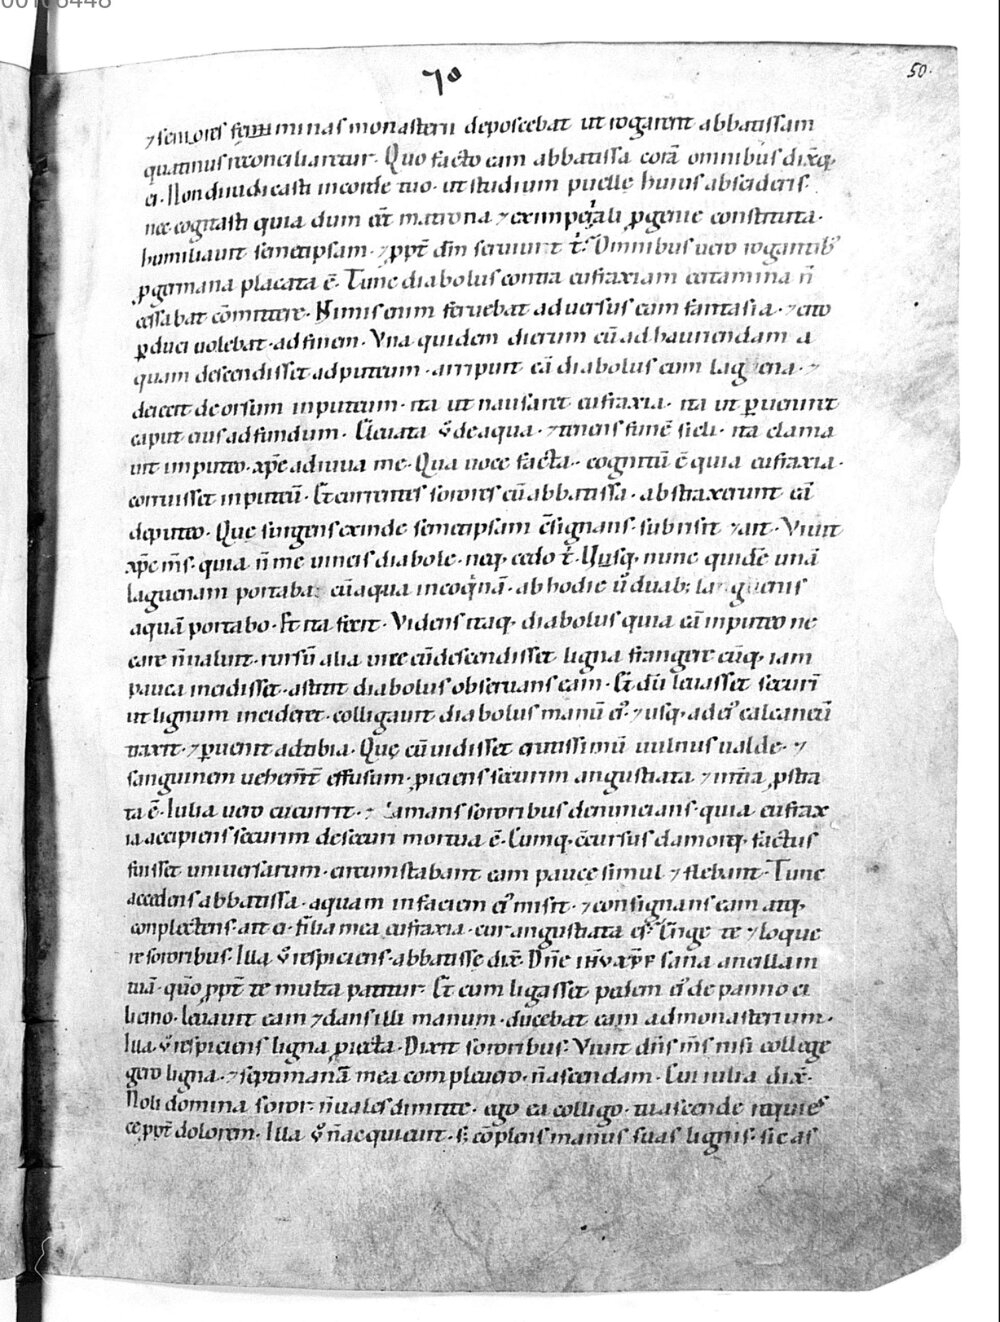 70
50.
⁊ seniores feminas monasterii deposcebat ut rogarent abbatissam
quatinus reconciliaretur. Quo facto eam abbatissa corā omnibus dixq;
ei. Non diiudicasti incorde tuo. ut studium puellę huius abscideris.
nec cogitasti quia dum eēt matrona ⁊ eximperiali ꝓgenie constituta.
humiliauit semetipsam. ⁊ ppt̄ dm̄ seruiunt t̄. Omnibus uero rogantib;
ꝓgermana placata ē. Tunc diabolus contra eufraxiam certamina n̄
cessabat cōmittere. Nimis enim feruebat aduersus eam fantasia. ⁊ cito
ꝑduci uolebat. adfinem. Vna quidem dierum cū adhauriendam a
quam descendisset adputeum. arripuit eā diabolus cum laguena. ⁊
deiecit deorsum inputeum. ita ut nausaret eufraxia. ita ut ꝑuenirit
caput eius adfundum. Eleuata v̄ deaqua. ⁊ tenens funē sicli. ita clama
uit inputeo. xp̄e adiuua me. Qua uoce facta. cognitū ē quia eufraxia.
corruisset inputeū. Et currentes sorores cū abbatissa. abstraxerunt eā
deputeo. Que surgens exinde semetipsam c̄signans. subrisit ⁊ ait. Viuit
xp̄c m̄s. quia n̄ me uincis diabole. neq; cedo t̄. Vsq; nunc quidē unā
laguenam portabā cū aqua incoq̇nā. ab hodie ū duab; laguenis
aquā portabo. Et ita fecit. Videns itaq; diabolus quia eā inputeo ne
care n̄ualuit. rursū alia uice cū descendisset ligna frangere cūq; iam
pauca incidisset. astitit diabolus obseruans eam. Et dū leuasset securī
ut lignum incideret. colligauit diabolus manū ei᾿. ⁊ usq; ad ei᾿ calcaneū
traxit. ⁊ ꝑuenit adtibia. Quę cū uidisset acutissimū uulnus ualde. ⁊
sanguinem uehem̄t effusum. ꝓiciens securim angustiata ⁊ int̄ia ꝓstra
ta ē. Iulia uero cucurrit. ⁊ clamans sororibus denuncians. quia eufrax
ia accipiens securim desecuri mortua ē. Cumq; c̄cursus clamorq; factus
fuisset uniuersarum. circumstabant eam paucę simul ⁊ flebant. Tunc
accedens abbatissa. aquam infaciem ei᾿ misit. ⁊ consignans eam atq;
complectens. ait ei. filia mea eufraxia. cur angustiata es? Surge te ⁊ loque
re sororibus. Illa v̄ respiciens. abbatisse dix̄. Dn̄e ihv xp̄e sana ancillam
tuā. quō ppt̄ te multa patitur. Et cum ligasset pedem ei᾿ de panno ci
licino. leuauit eam ⁊ dans illi manum. ducebat eam admonasterium.
Illa. v̄ respiciens ligna ꝓiecta. Dixit sororibus. Viuit dn̄s m̄s nisi college
gero ligna. ⁊ septimanā mea compleuero. n̄ascendam. Cui iulia dix̄.
Noli domina soror. n̄uales dimitte. ego ea colligo. tuascende requies
ce ppt̄ dolorem. Illa v̄ n̄acquieuit. s; cōplens manus suas lignis. sic as